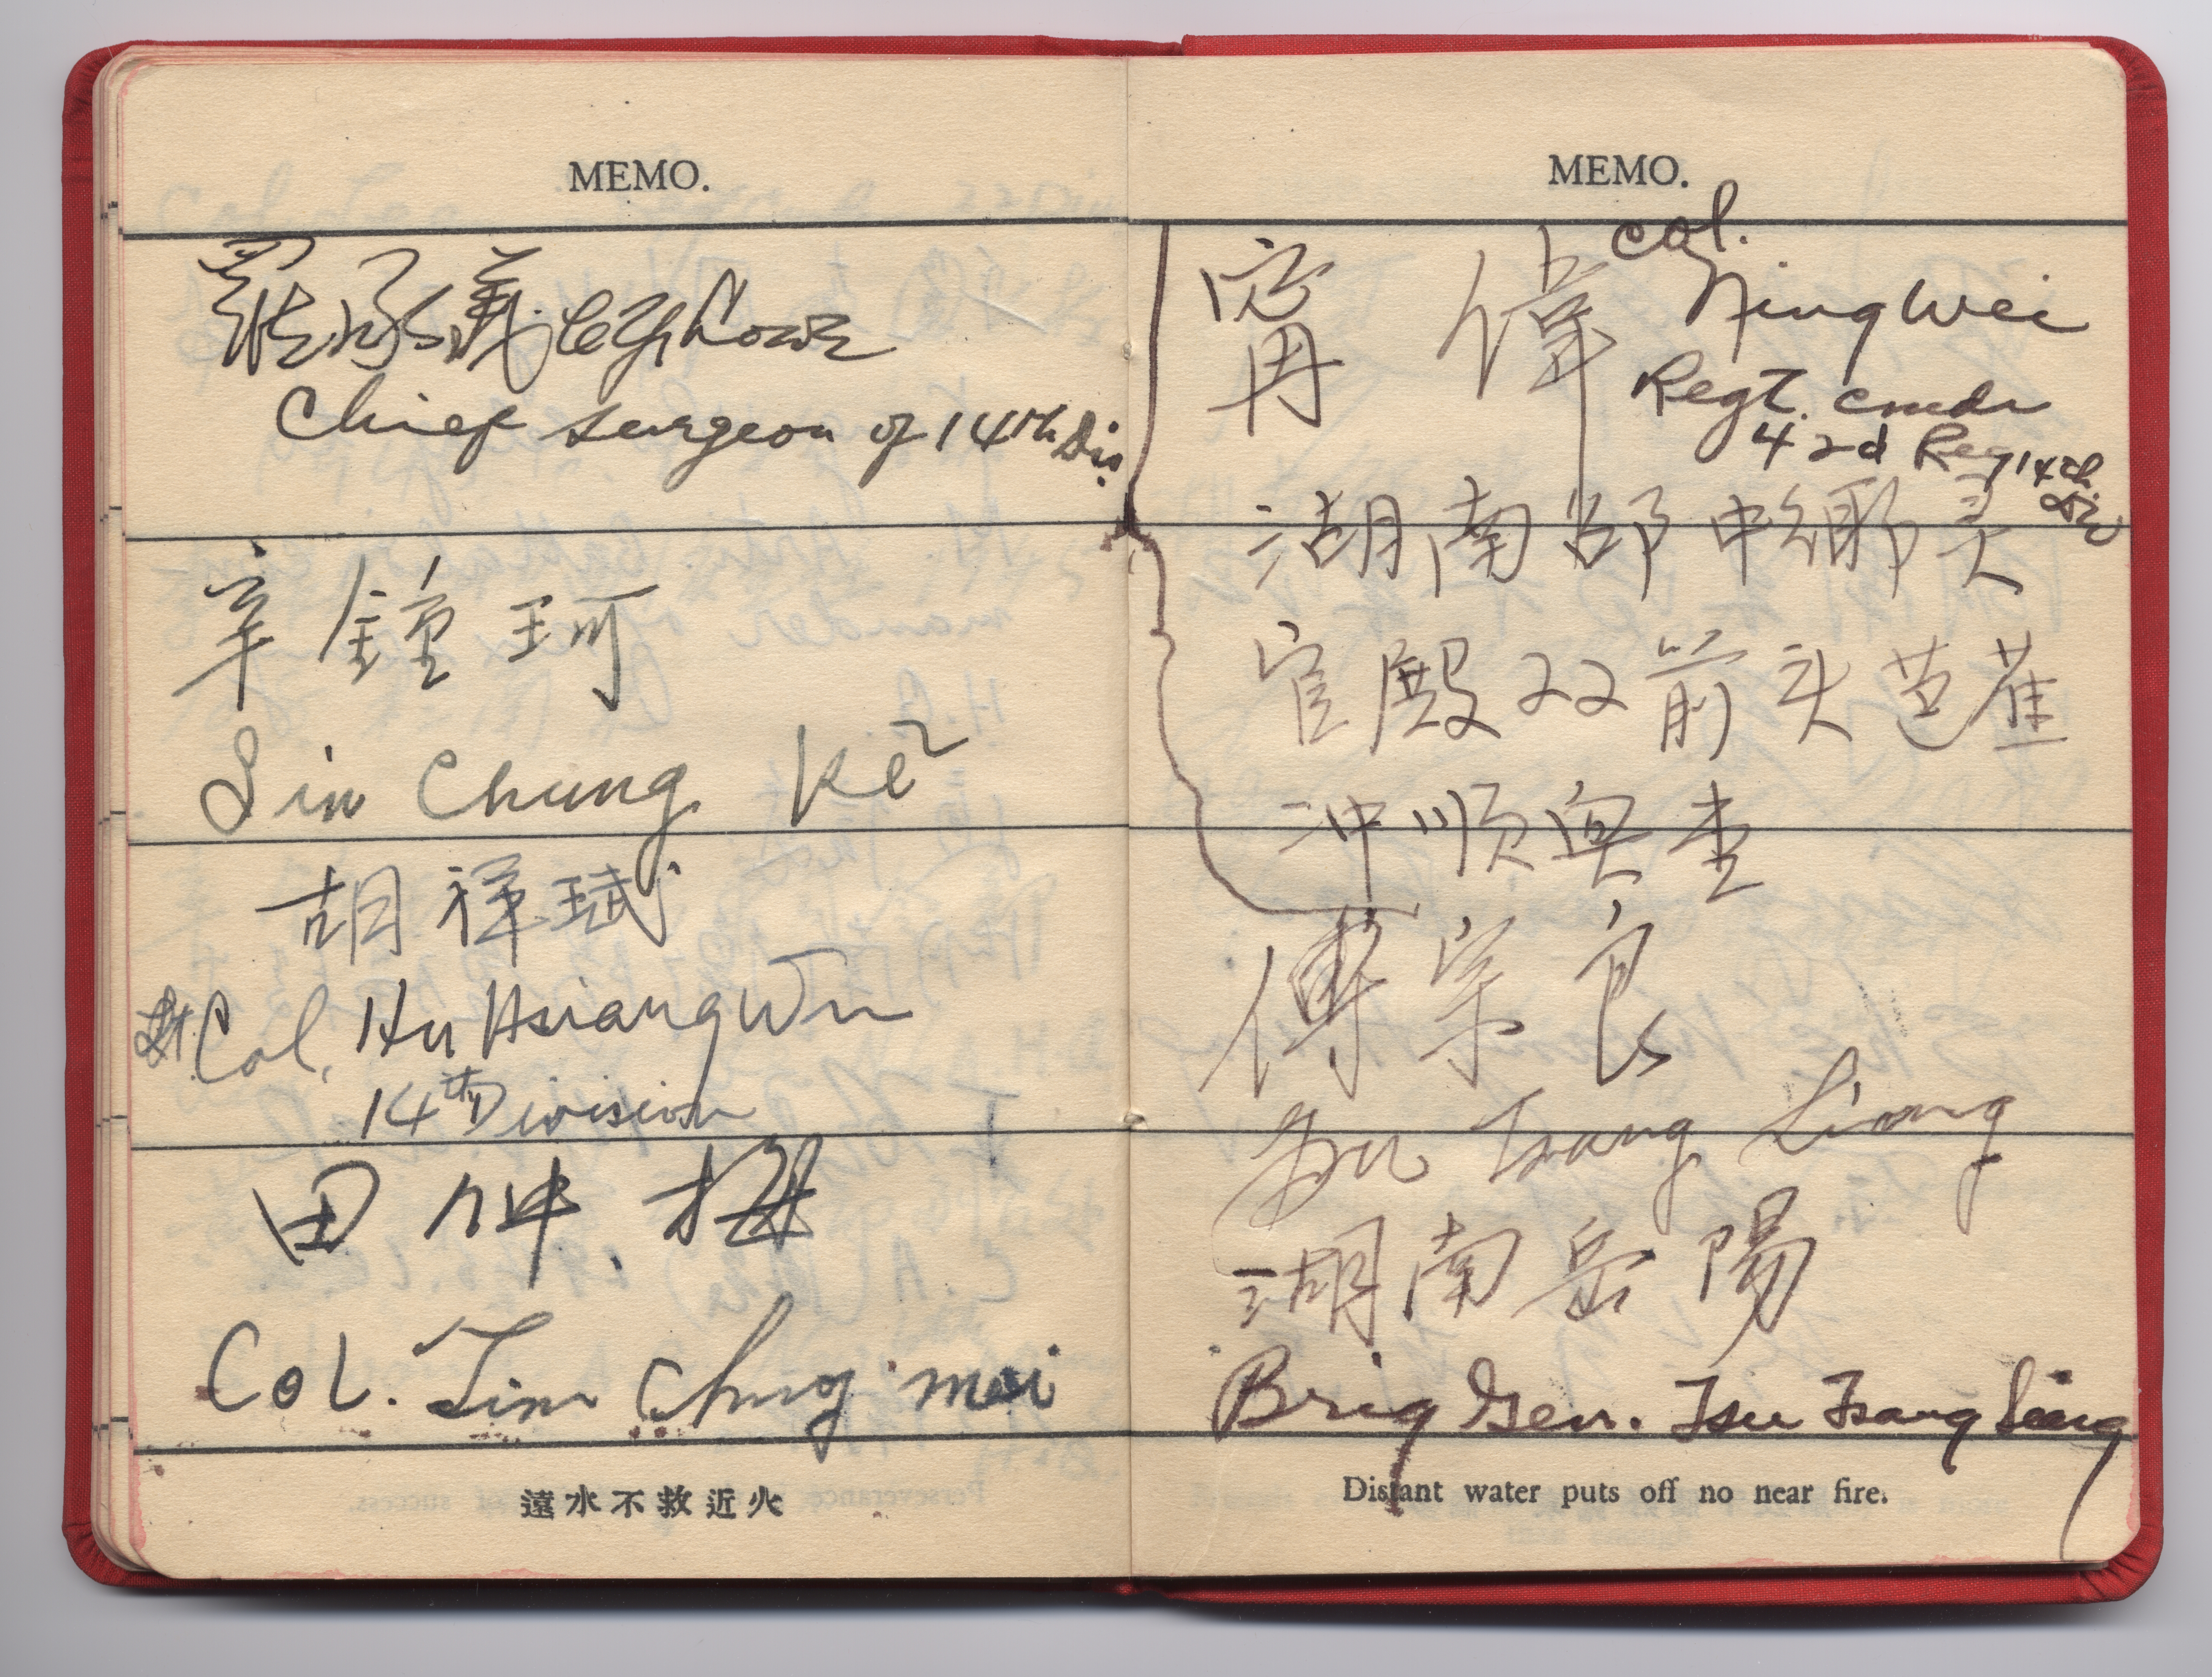 MEMO.
羅承義
Chief surgeon of 14th Div.
辛鍾珂
Sin Chung Ke
胡祥珷
Lt. Col. Hu Hsiang Wu
14th Division
田仲梅
Col. Tien Chung mei
遠水不救近火
MEMO.
甯偉 Col.
Ning Wei
Regt. cmdr
42d Reg 14th
Div
湖南邵
官殿双箭头芭蕉
冲顺興
傅宗良
Fu Tsang Liang
湖南岳陽
Brig Gen. Fsu Tsang Liang
Distant water puts off no near fire.